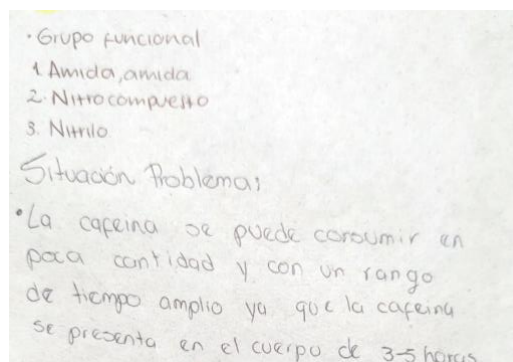 · Grupo funcional
1. Amida, amida
2. Nitrocompuesto
3. Nitrilo
Situación Problema:
· La cafeina se puede consumir en
poca cantidad y con un rango
de tiempo amplio ya que la cafeina
se presenta en el cuerpo de 3-5 horas